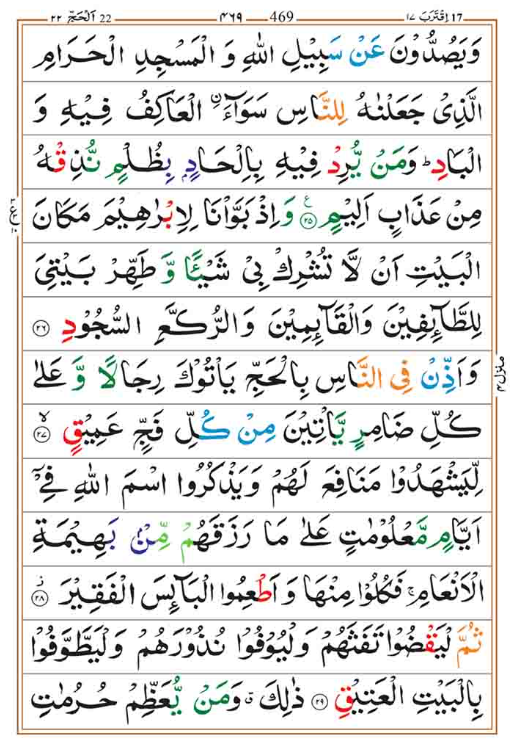 اَلْحَجّ ٢٢ 22 ٤٦٩ 469 اِقْتَرَبَ ١٧ 17
وَيَصُدُّوْنَ عَنْ سَبِيْلِ اللّٰهِ وَ الْمَسْجِدِ الْحَـرَامِ
الَّذِىْ جَعَلْنٰهُ لِلنَّاسِ سَوَآءَ اۨلْعَاكِفُ فِيْهِ وَ
الْبَادِؕ وَمَنْ يُّرِدْ فِيْهِ بِاِلْحَادٍۭ بِظُلْمٍ نُّذِقْهُ
مِنْ عَذَابٍ اَلِيْمٍ ٢٥ وَاِذْ بَوَّاْنَا لِاِبْرٰهِيْمَ مَكَانَ
الْبَيْتِ اَنْ لَّا تُشْرِكْ بِىْ شَيْــًٔا وَّ طَهِّرْ بَيْتِىَ
لِلطَّآٮِٕفِيْنَ وَالْقَآٮِٕمِيْنَ وَ الرُّكَّعِ السُّجُوْدِ ٢٦
وَ اَذِّنْ فِى النَّاسِ بِالْحَجِّ يَاْتُوْكَ رِجَالًا وَّ عَلٰى
كُلِّ ضَامِرٍ يَّاْتِيْنَ مِنْ كُلِّ فَجٍّ عَمِيْقٍۙ ٢٧
لِّيَشْهَدُوْا مَنَافِعَ لَهُمْ وَيَذْكُرُوا اسْمَ اللّٰهِ فِىْۤ
اَ يَّامٍ مَّعْلُوْمٰتٍ عَلٰى مَا رَزَقَهُمْ مِّنْۢ بَهِيْمَةِ
الْاَنْعَامِۚ فَكُلُوْا مِنْهَا وَ اَطْعِمُوا الْبَآٮِٕسَ الْفَقِيْرَ ٢٨
ثُمَّ لْيَقْضُوْا تَفَثَهُمْ وَلْيُوْفُوْا نُذُوْرَهُمْ وَلْيَطَّوَّفُوْا
بِالْبَيْتِ الْعَتِيْقِ ٢٩ ذٰلِكَ وَمَنْ يُّعَظِّمْ حُرُمٰتِ